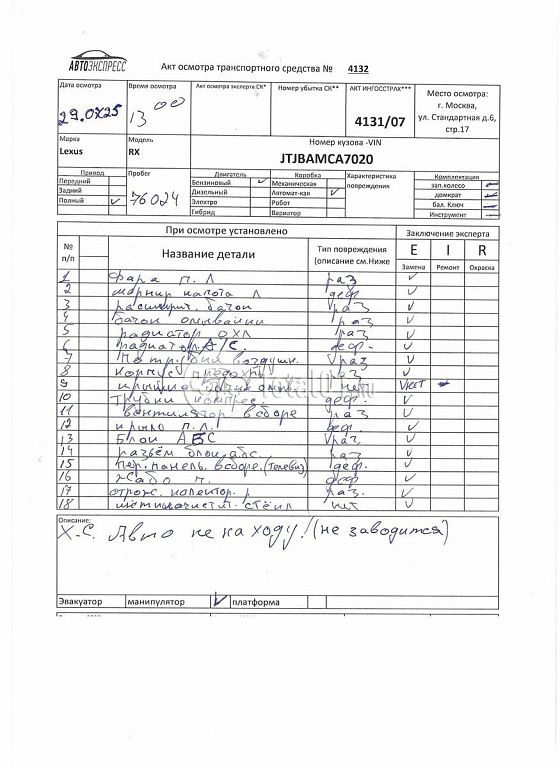 АВТОЭКСПРЕСС
Акт осмотра транспортного средства № 4132
Дата осмотра Время осмотра Акт осмотра эксперта СК* Номер убытка СК** АКТ ИНГОССТРАХ*** Место осмотра:
г. Москва,
ул. Стандартная д.6,
стр.17
13 00
4131/07
Марка Модель Номер кузова -VIN
Lexus RX JTJBAMCA7020
Привод Пробег Двигатель Коробка Характеристика повреждения Комплектация
Передний Бензиновый ✓ Механическая зап.колесо
Задний Дизельный Автомат-кая ✓ домкрат
Полный ✓ 76024 Электро Робот бал. Ключ
Гибрид Вариатор Инструмент
При осмотре установлено Заключение эксперта
№ п/п Название детали Тип повреждения (описание см.Ниже E I R
Замена Ремонт Окраска
1 Фара п. Л раз ✓
2 шарнир капота Л деф ✓
3 расширит. бачок раз ✓
4 Бачок омывайки раз ✓
5 радиатор охл раз ✓
6 радиатор. А/С. деф. ✓
7 Патрубки воздушн. раз ✓
8 Корпус раз ✓
9 крышка бачка омыв. нет
10 Трубки компрес. деф. ✓
11 вентилятор в сборе раз ✓
12 крыло п.Л. деф. ✓
13 Блок АБС раз ✓
14 разъём блок абс. раз ✓
15 пер. панель. в сборе. (телевиз) деф. ✓
16 Жабо п. деф ✓
17 раз. ✓
18 нет ✓
Описание:
Х-С. Авто не на ходу! (не заводится)
Эвакуатор манипулятор ✓ платформа